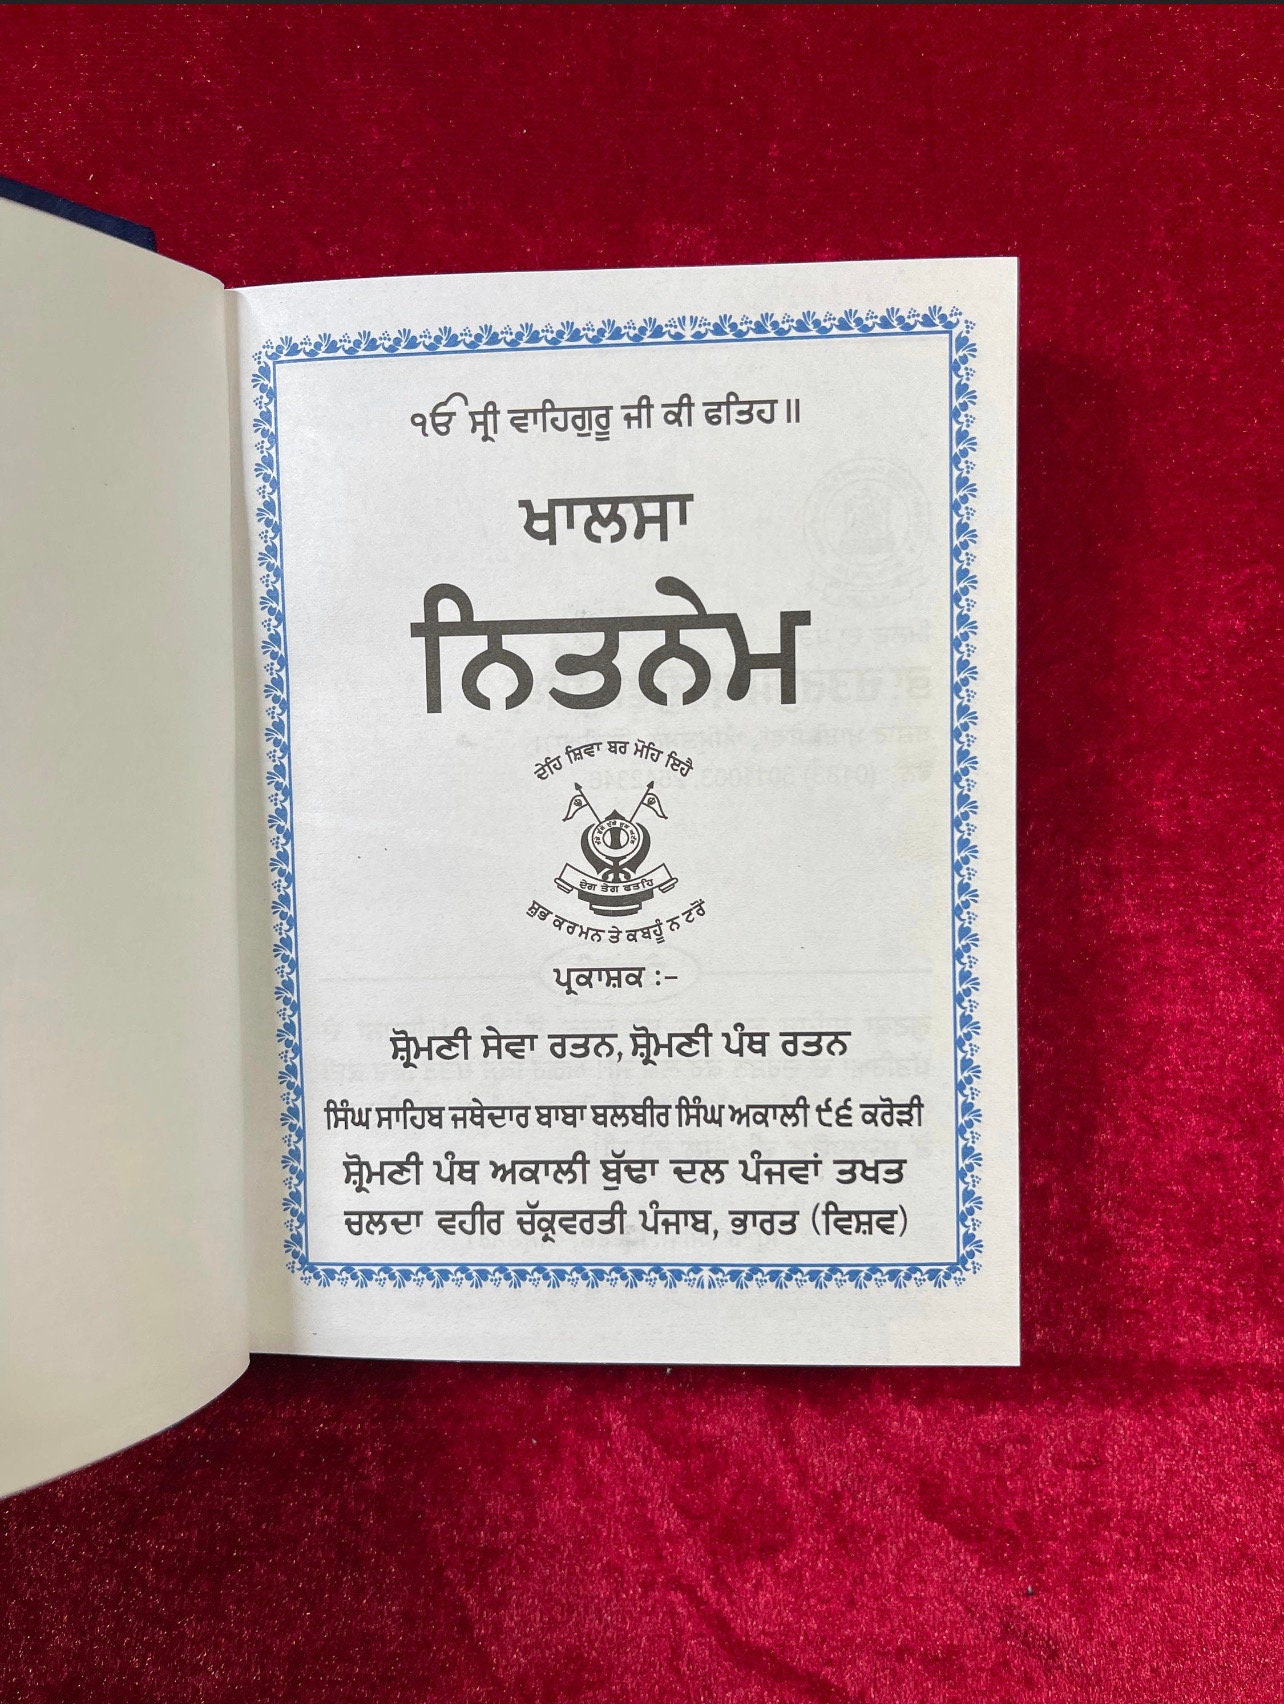 ੴ ਸ੍ਰੀ ਵਾਹਿਗੁਰੂ ਜੀ ਕੀ ਫਤਿਹ॥
ਖਾਲਸਾ
ਨਿਤਨੇਮ
ਦੇਹਿ ਸ਼ਿਵਾ ਬਰ ਮੋਹਿ ਇਹੈ
ਦੇਗ ਤੇਗ ਫਤਹਿ
ਸ਼ੁਭ ਕਰਮਨ ਤੇ ਕਬਹੂੰ ਨ ਟਰੋਂ
ਪ੍ਰਕਾਸ਼ਕ :–
ਸ਼੍ਰੋਮਣੀ ਸੇਵਾ ਰਤਨ, ਸ਼੍ਰੋਮਣੀ ਪੰਥ ਰਤਨ
ਸਿੰਘ ਸਾਹਿਬ ਜਥੇਦਾਰ ਬਾਬਾ ਬਲਬੀਰ ਸਿੰਘ ਅਕਾਲੀ ੯੬ ਕਰੋੜੀ
ਸ਼੍ਰੋਮਣੀ ਪੰਥ ਅਕਾਲੀ ਬੁੱਢਾ ਦਲ ਪੰਜਵਾਂ ਤਖਤ
ਚਲਦਾ ਵਹੀਰ ਚੱਕ੍ਰਵਰਤੀ ਪੰਜਾਬ, ਭਾਰਤ (ਵਿਸ਼ਵ)